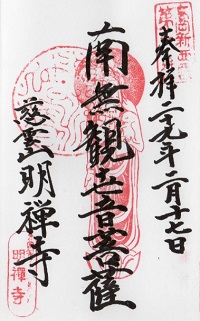 奉拝 二九年二月十七日
南無観世音菩薩
慈雲山明禅寺
明禅寺